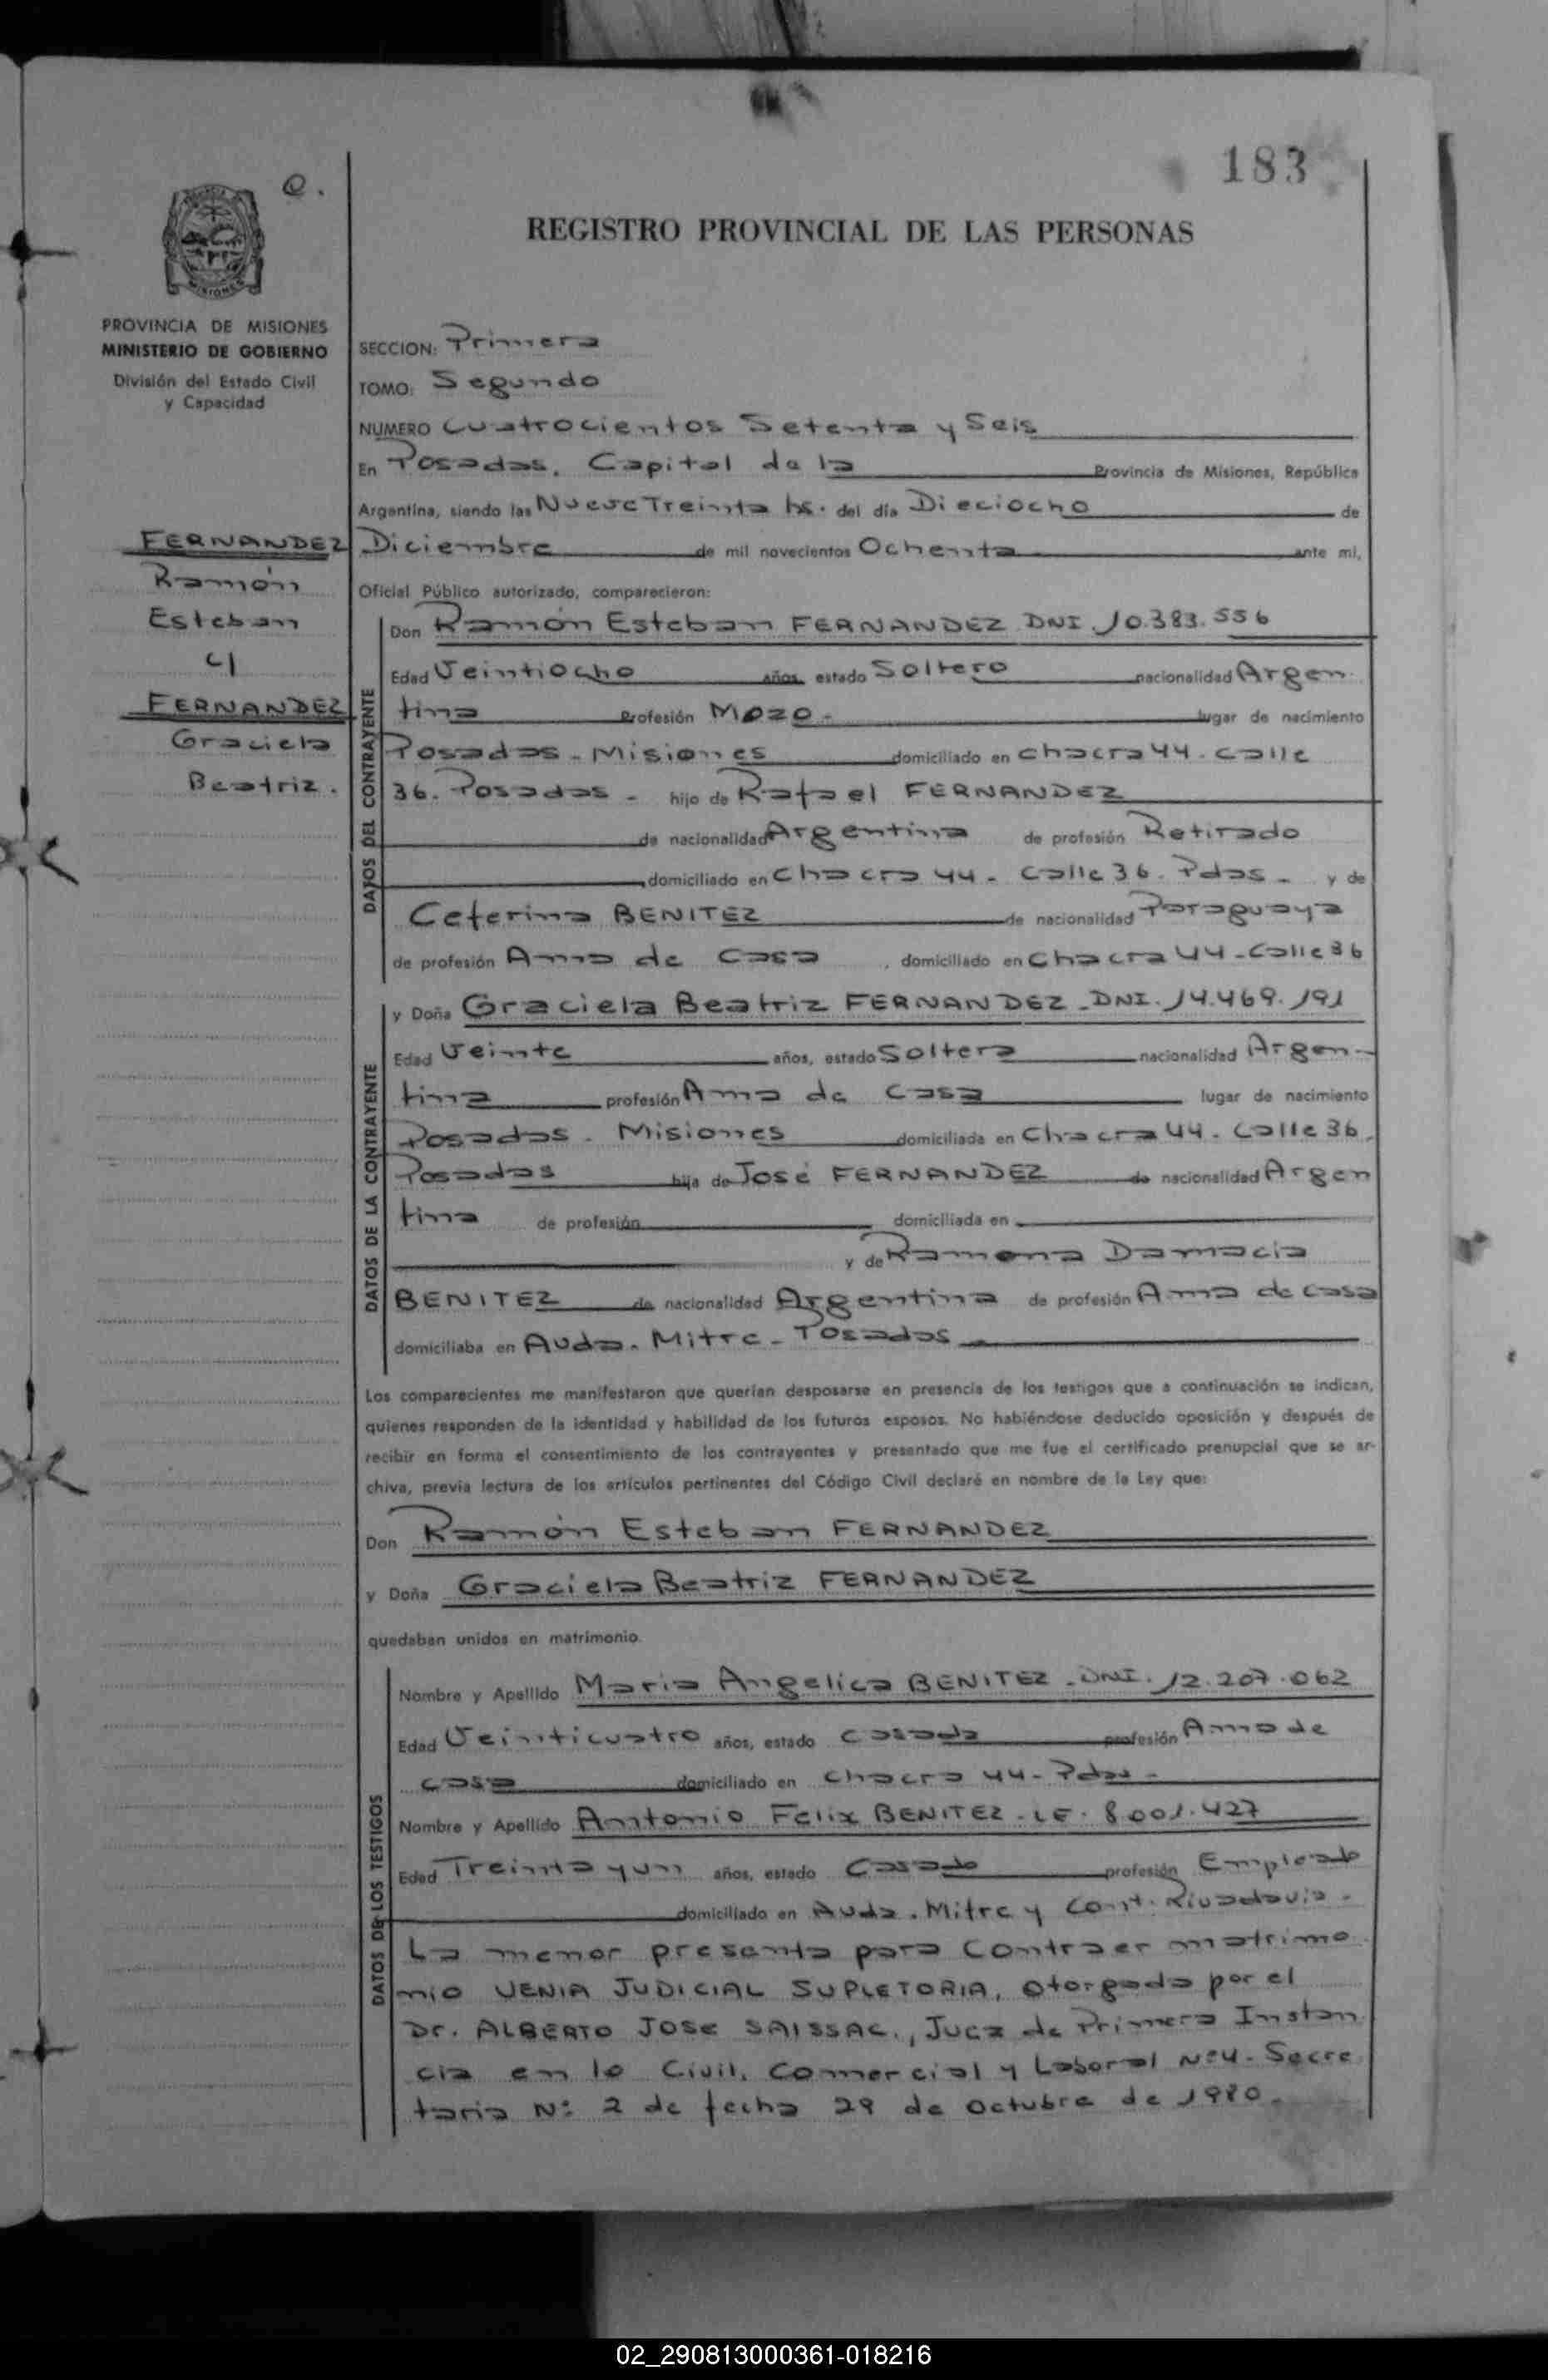 183
e.
REGISTRO PROVINCIAL DE LAS PERSONAS
MISIONES
PROVINCIA DE MISIONES
MINISTERIO DE GOBIERNO
División del Estado Civil
y Capacidad
FERNANDEZ
Ramón
Esteban
c/
FERNANDEZ
Graciela
Beatriz.
SECCION: Primera
TOMO: Segundo
NUMERO Cuatrocientos Setenta y Seis
En Posadas, Capital de la Provincia de Misiones, República
Argentina, siendo las Nueve Treinta hs. del día Dieciocho de
Diciembre de mil novecientos Ochenta ante mí,
Oficial Público autorizado, comparecieron:
DATOS DEL CONTRAYENTE
Don Ramón Esteban FERNANDEZ DNI. 10.383.556
Edad Veintiocho años, estado Soltero nacionalidad Argen
tina profesión Mozo - lugar de nacimiento
Posadas - Misiones domiciliado en Chacra 44. Calle
36. Posadas - hijo de Rafael FERNANDEZ
de nacionalidad Argentina de profesión Retirado
domiciliado en Chacra 44 - Calle 36. Pdas - y de
Ceferina BENITEZ de nacionalidad Paraguaya
de profesión Ama de Casa , domiciliado en Chacra 44 - Calle 36
DATOS DE LA CONTRAYENTE
y Doña Graciela Beatriz FERNANDEZ - DNI. 14.469.191
Edad Veinte años, estado Soltera nacionalidad Argen-
tina profesión Ama de Casa lugar de nacimiento
Posadas - Misiones domiciliada en Chacra 44. Calle 36.
Posadas hija de José FERNANDEZ de nacionalidad Argen
tina de profesión domiciliada en
y de Ramona Damacia
BENITEZ de nacionalidad Argentina de profesión Ama de Casa
domiciliaba en Avda. Mitre - Posadas
Los comparecientes me manifestaron que querían desposarse en presencia de los testigos que a continuación se indican,
quienes responden de la identidad y habilidad de los futuros esposos. No habiéndose deducido oposición y después de
recibir en forma el consentimiento de los contrayentes y presentado que me fue el certificado prenupcial que se ar-
chiva, previa lectura de los artículos pertinentes del Código Civil declaré en nombre de la Ley que:
Don Ramón Esteban FERNANDEZ
y Doña Graciela Beatriz FERNANDEZ
quedaban unidos en matrimonio.
DATOS DE LOS TESTIGOS
Nombre y Apellido Maria Angelica BENITEZ - DNI. 12.207.062
Edad Veinticuatro años, estado Casada profesión Ama de
casa domiciliado en Chacra 44 - Pdas -
Nombre y Apellido Antonio Felix BENITEZ - LE. 8.001.427
Edad Treinta y un años, estado Casado profesión Empleado
domiciliado en Avda. Mitre y Cont. Rivadavia -
La menor presenta para contraer matrimo
nio VENIA JUDICIAL SUPLETORIA, otorgada por el
Dr. ALBERTO JOSE SAISSAC., Juez de Primera Instan
cia en lo Civil, Comercial y Laboral Nº4. Secre
taria Nº 2 de fecha 29 de Octubre de 1980.
02_290813000361-018216